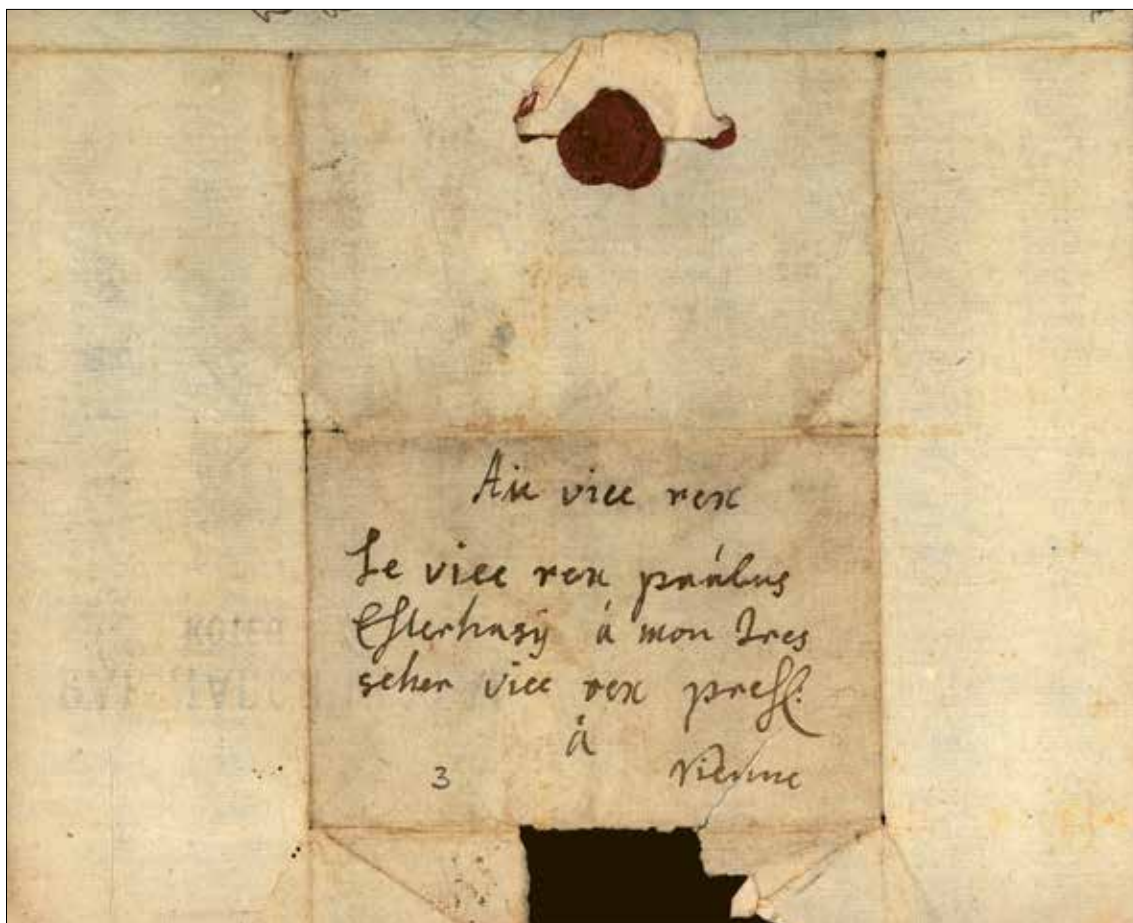 Au vice rex
Le vice rex paálus
Esterhasÿ á mon tres
scher vice rex press:
á
vienne
3